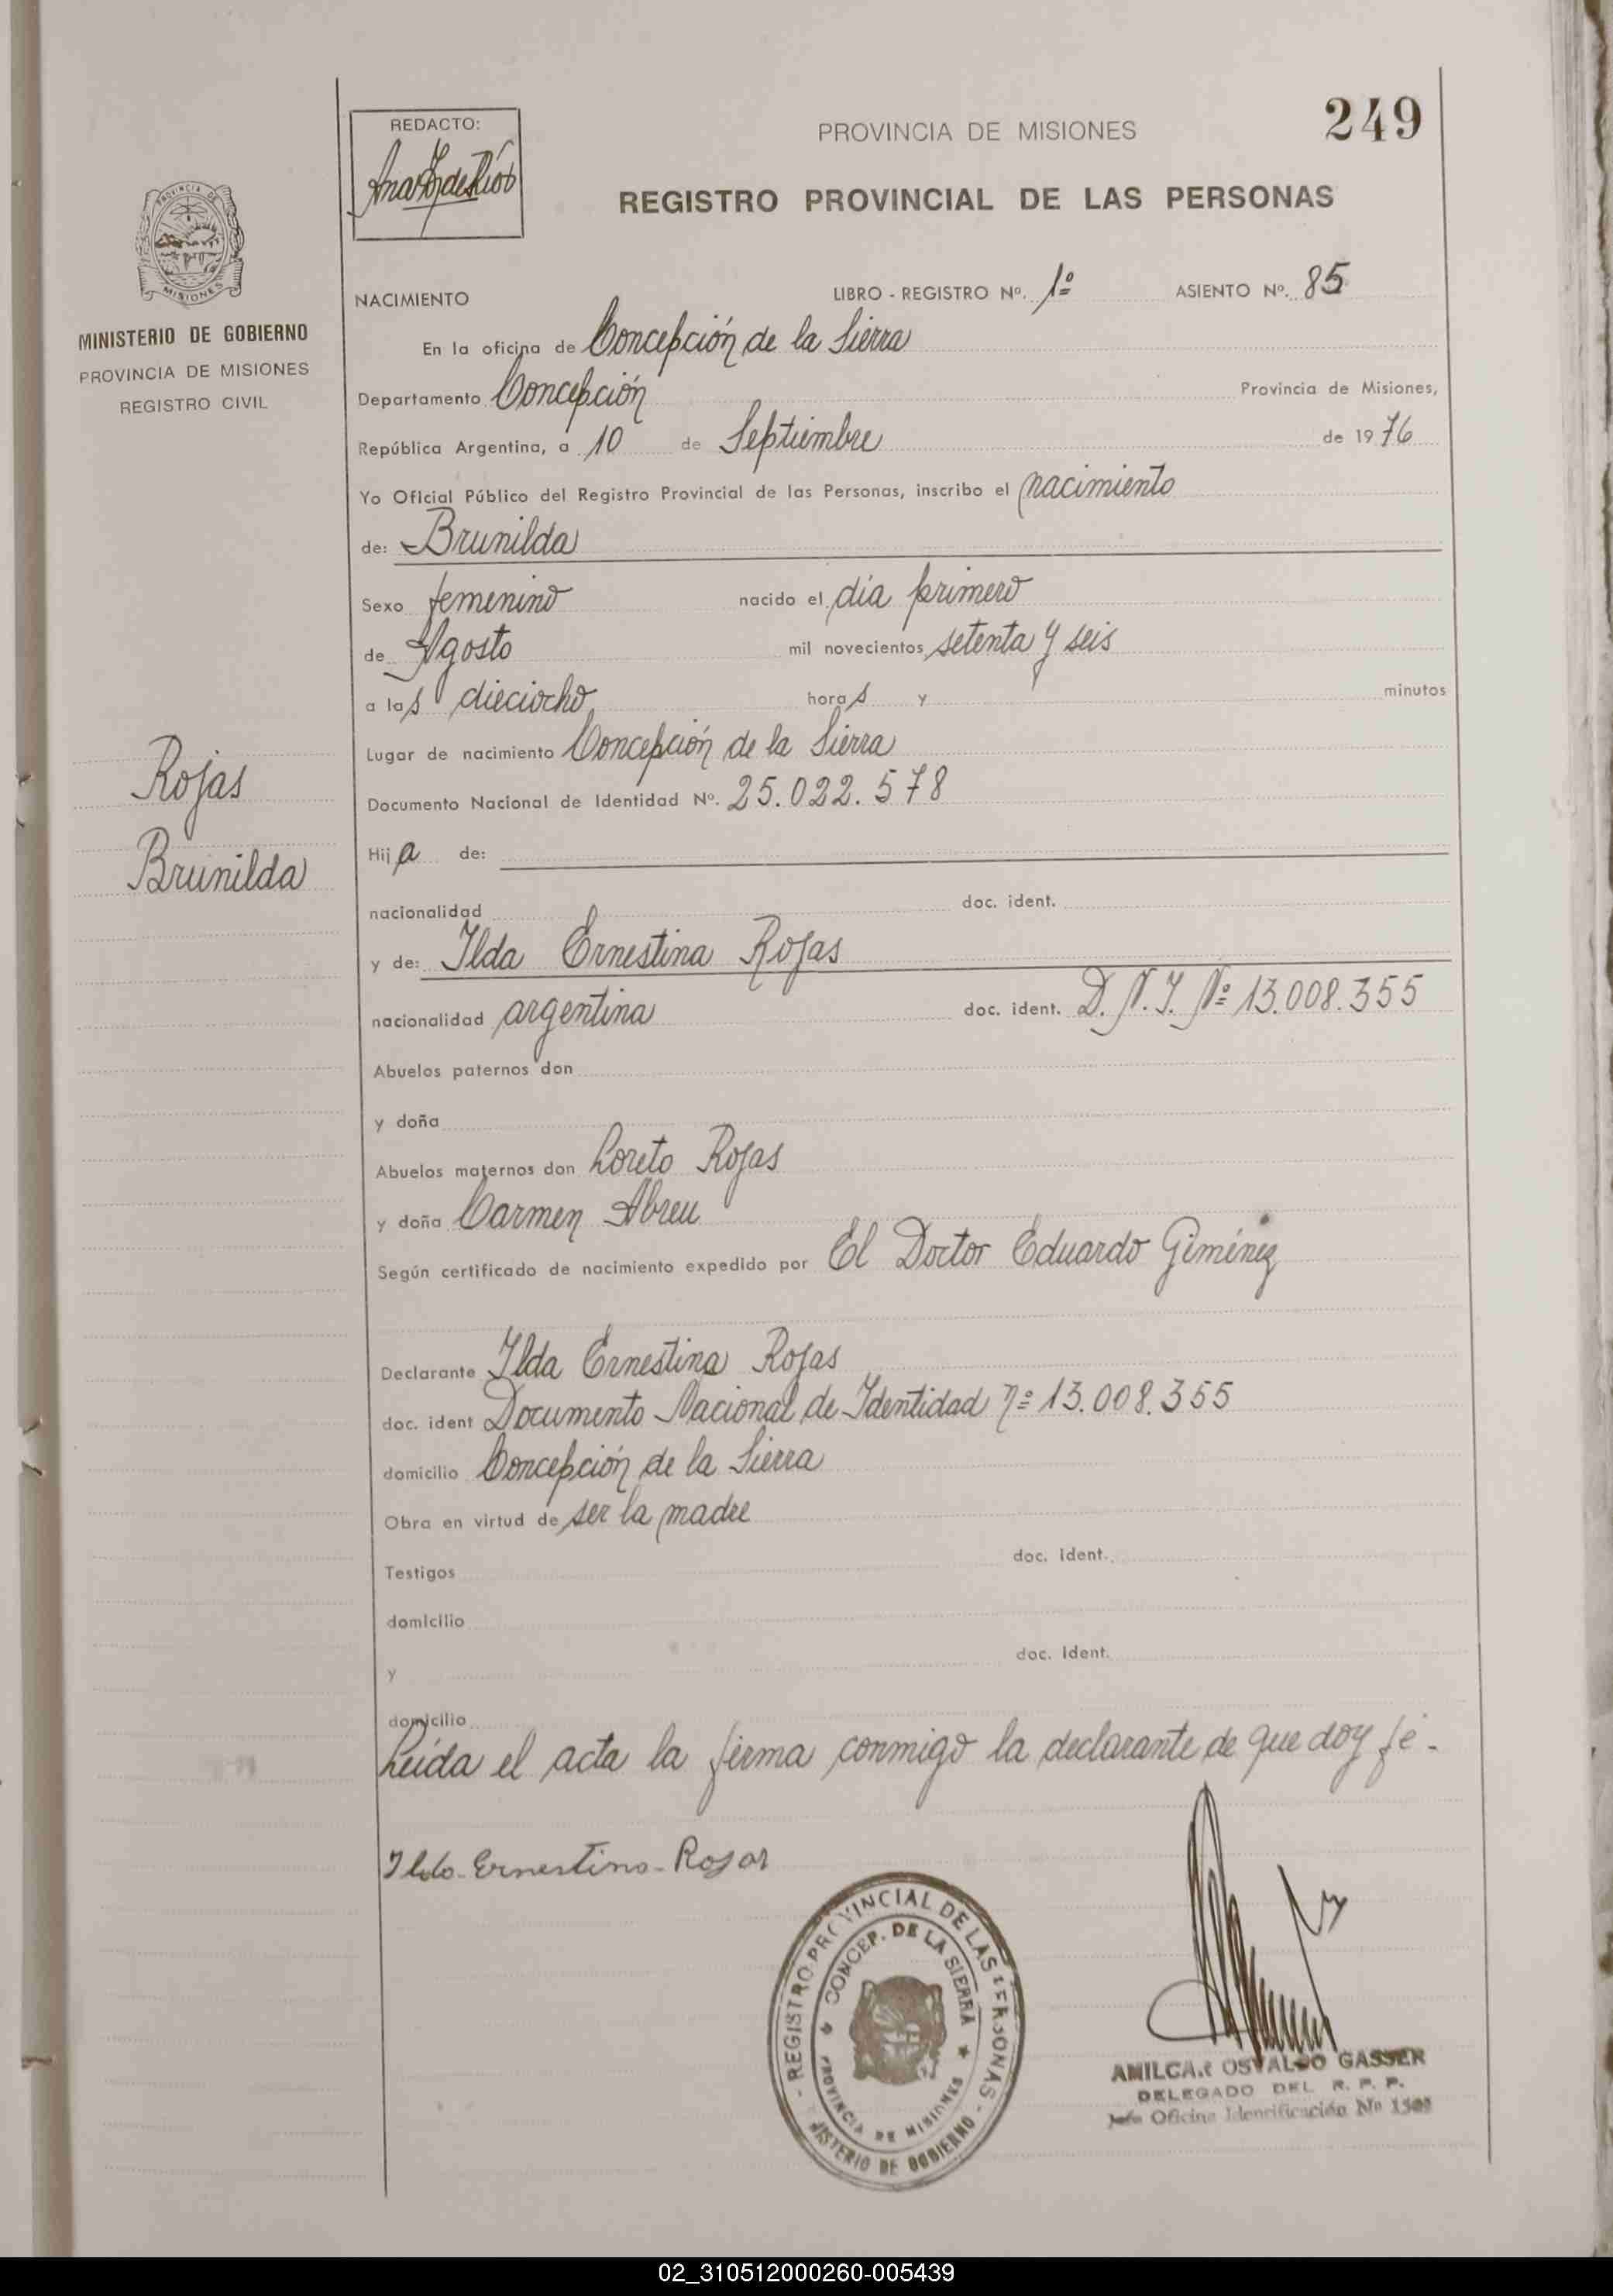 249
REDACTO:
PROVINCIA DE MISIONES
REGISTRO PROVINCIAL DE LAS PERSONAS
PROVINCIA DE
MISIONES
MINISTERIO DE GOBIERNO
PROVINCIA DE MISIONES
REGISTRO CIVIL
NACIMIENTO LIBRO - REGISTRO Nº. 1º ASIENTO Nº. 85
En la oficina de Concepción de la Sierra
Departamento Concepción Provincia de Misiones,
República Argentina, a 10 de Septiembre de 1976
Yo Oficial Público del Registro Provincial de las Personas, inscribo el nacimiento
de: Brunilda
Sexo femenino nacido el día primero
de Agosto mil novecientos setenta y seis
a las dieciocho horas y minutos
Lugar de nacimiento Concepción de la Sierra
Documento Nacional de Identidad Nº. 25.022.578
Rojas
Brunilda
Hija de:
nacionalidad doc. ident.
y de: Ilda Ernestina Rojas
nacionalidad argentina doc. ident. D.N.I. Nº 13.008.355
Abuelos paternos don
y doña
Abuelos maternos don Loreto Rojas
y doña Carmen Abreu
Según certificado de nacimiento expedido por El Doctor Eduardo Giménez
Declarante Ilda Ernestina Rojas
doc. ident Documento Nacional de Identidad nº 13.008.355
domicilio Concepción de la Sierra
Obra en virtud de ser la madre
Testigos doc. ident.
domicilio
y doc. ident.
domicilio
Leída el acta la firma conmigo la declarante de que doy fé.
Ilda Ernestina Rojas
REGISTRO PROVINCIAL DE LAS PERSONAS
CONCEP. DE LA SIERRA
PROVINCIA DE MISIONES
MINISTERIO DE GOBIERNO
AMILCAR OSVALDO GASSER
DELEGADO DEL R. P. P.
Jefe Oficina Identificación Nº
02_310512000260-005439